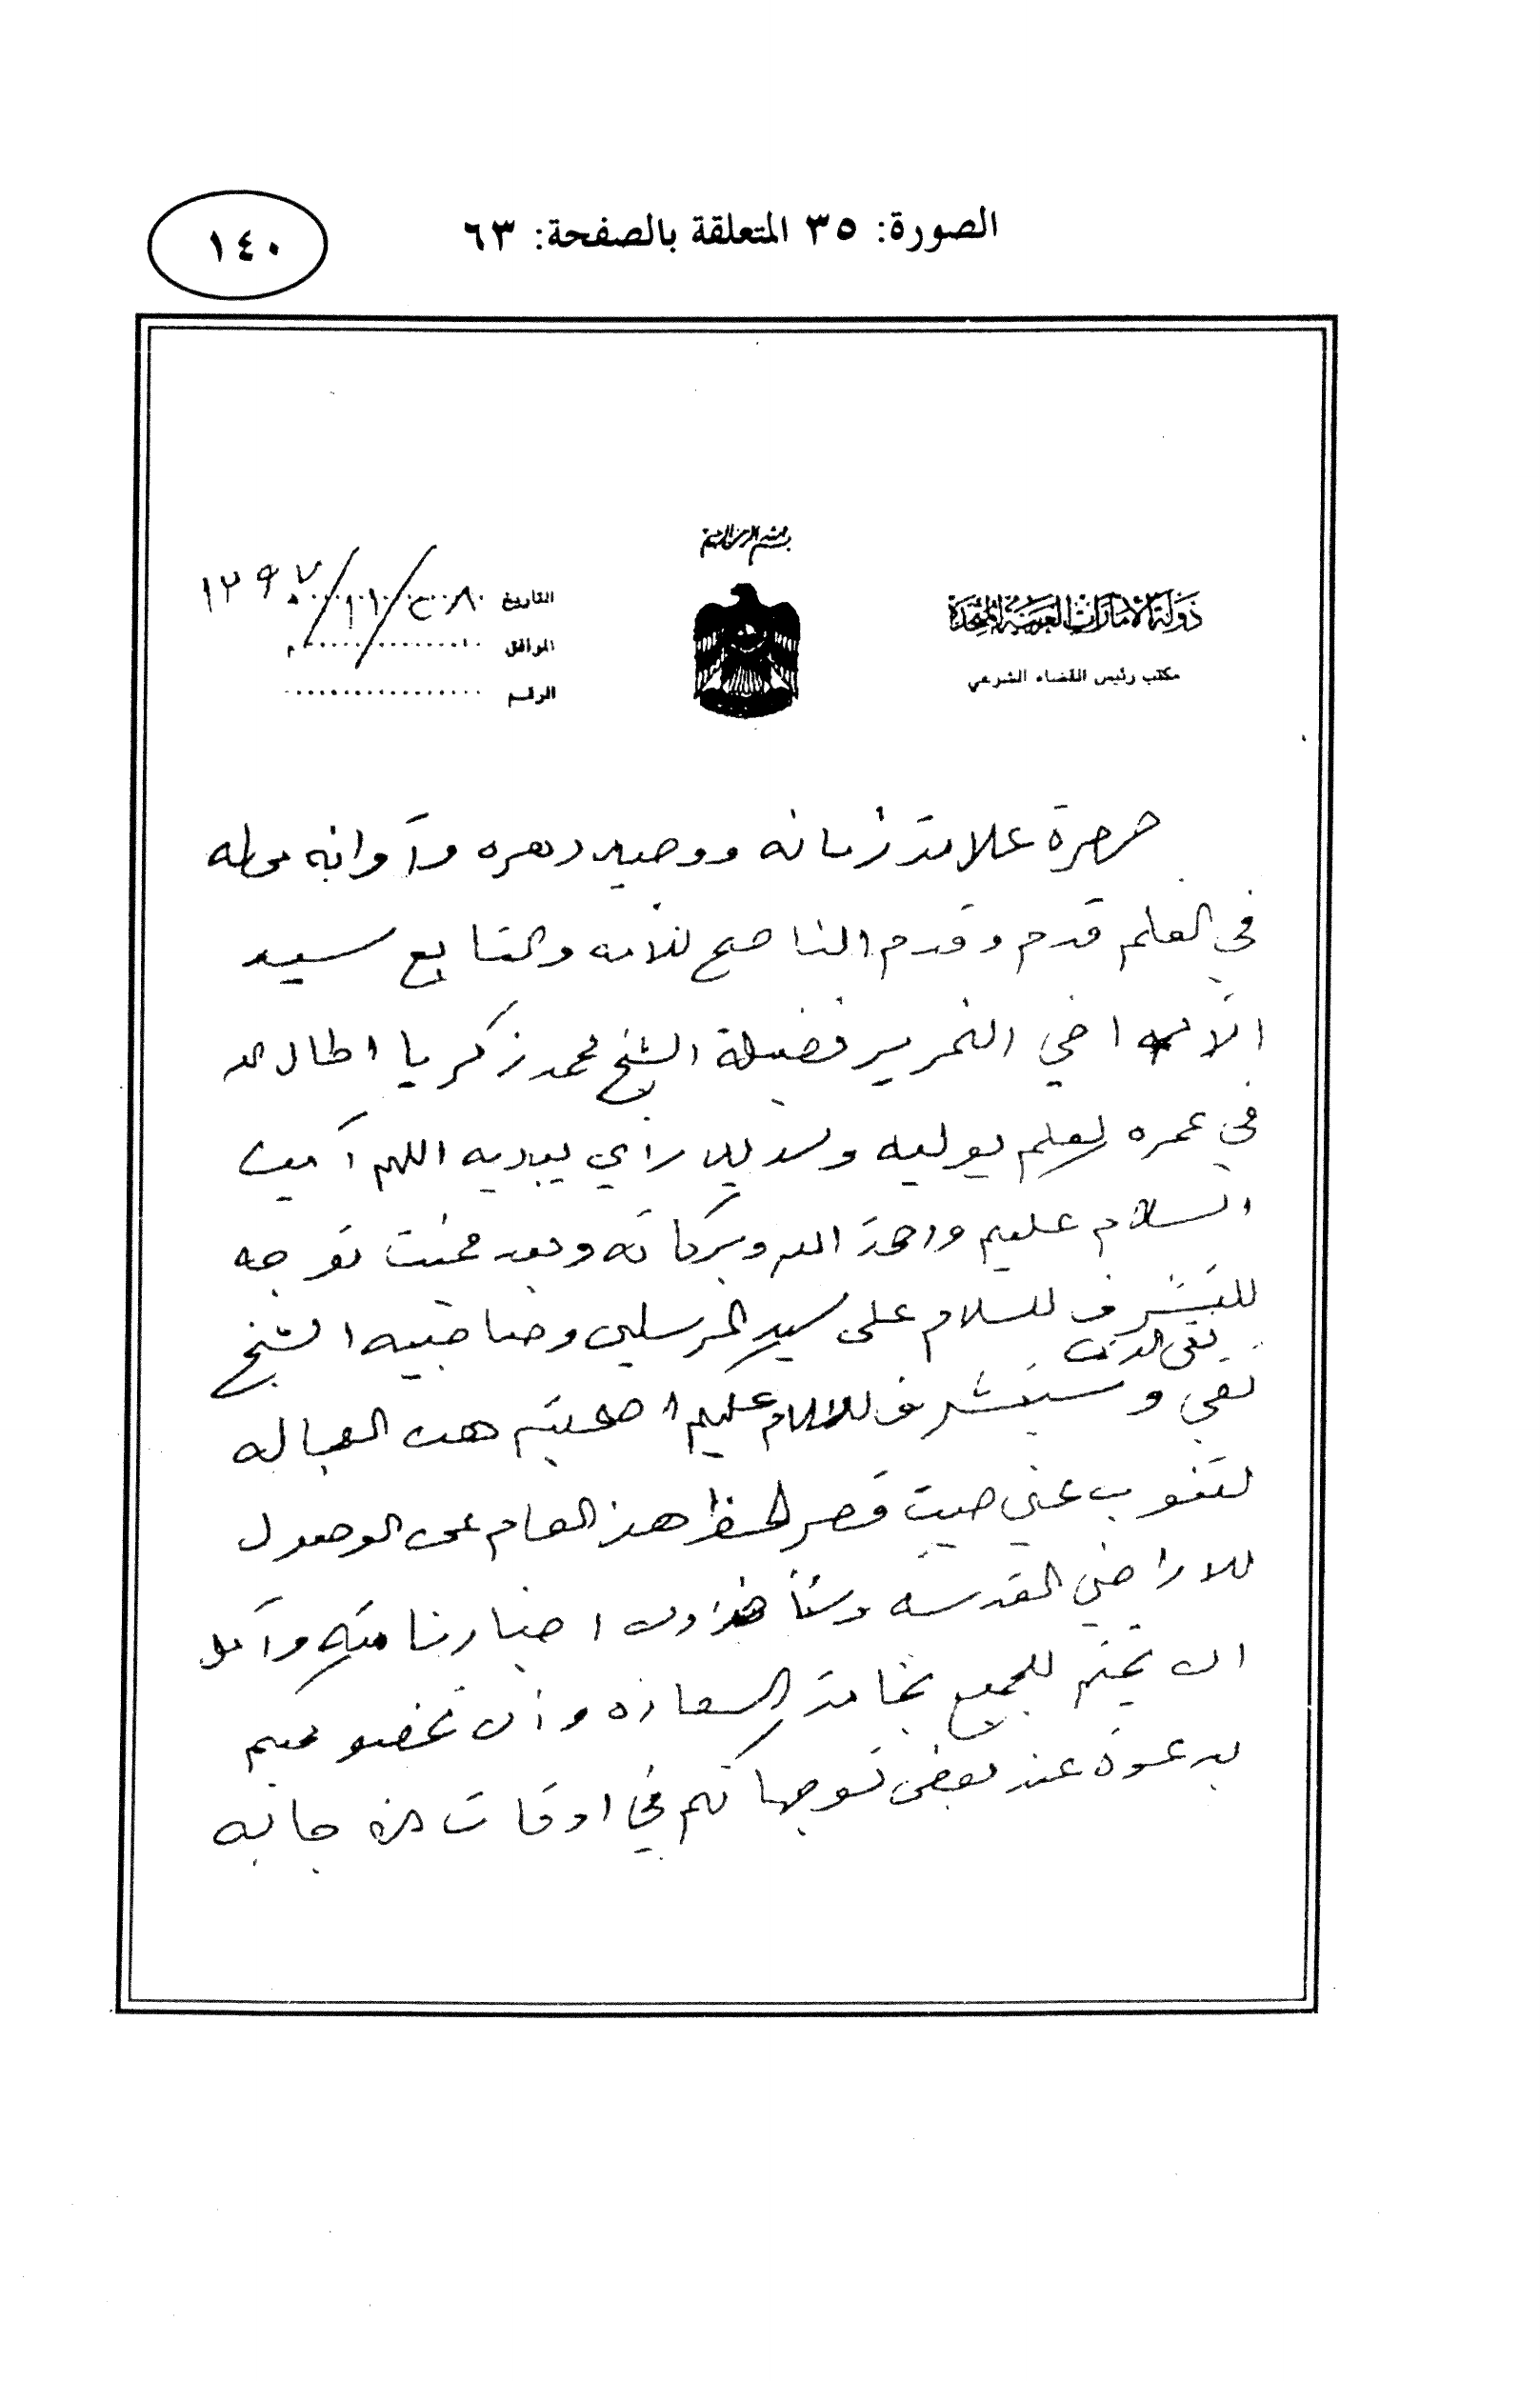 الصورة: ٣٥ المتعلقة بالصفحة: ٦٣
١٤٠
بسم الله الرحمن الرحيم
دولة الامارات العربية المتحدة
مكتب رئيس القضاء الشرعي
التاريخ ٢٨/١١/١٣٩٧ هـ
الموافق م
الرقم
حضرة علامة زمانه ووحيد دهره وآوانه
في العلم قدم وقدم الناصح للأمه والتابع سيد
الأئمه اخي النحرير فضيلة الشيخ محمد زكريا اطال الله
في عمره لعلم يوليه وسديد رأي يبديه اللهم آمين
السلام عليكم ورحمة الله وبركاته وبعد توجه
للتشرف للسلام على سيد المرسلين وصاحبيه الشيخ
تقي الدين
تقي وسيتشرف للسلام عليكم اصحبته هذه العجاله
لتنوب عني حيث قصر الحظ هذا العام عن الوصول
للاراضي المقدسه اخبارنا وآمل
ان يختم للجميع بخاتمة السعاده وان تخصو محبكم
بدعوة عند بعض توجهاتكم في اوقات الاجابه